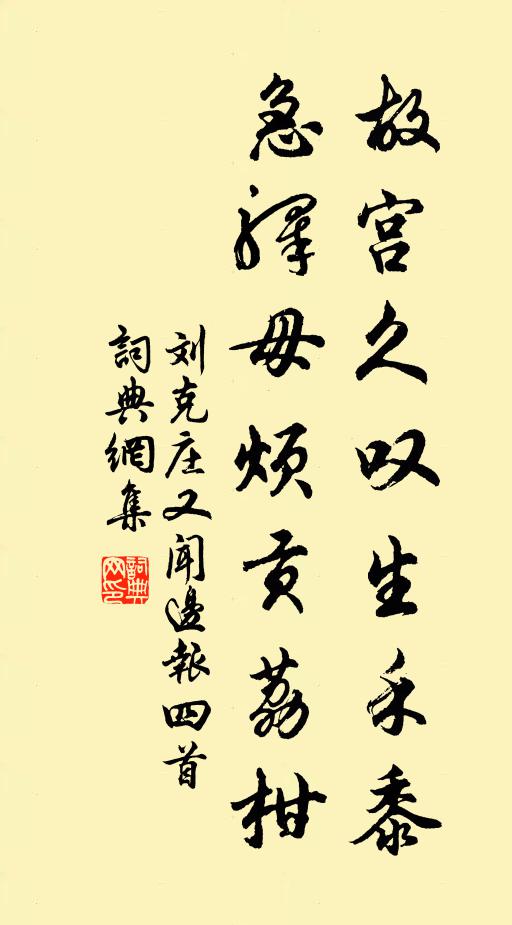 故宫久叹生禾黍
急驿毋烦贡荔柑
刘克庄又闻邊報四首
詞典網集
詞典网印